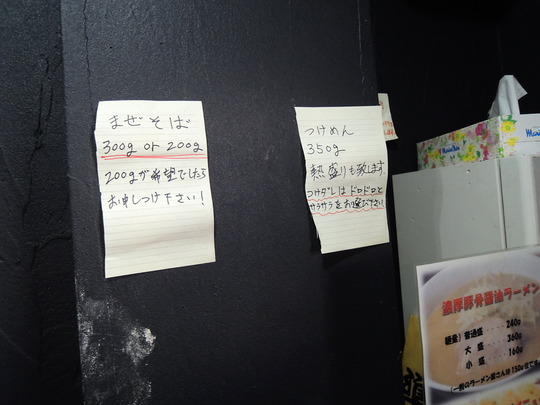 まぜそば
300g or 200g
200gが希望でしたら
お申しつけ下さい!
つけめん
350g
熱盛りも致します。
つけダレはドロドロと
サラサラをお選び下さい
濃厚豚骨醤油ラーメン
麺量)普通盛・・・・240g
大 盛・・・・360g
小 盛・・・・160g